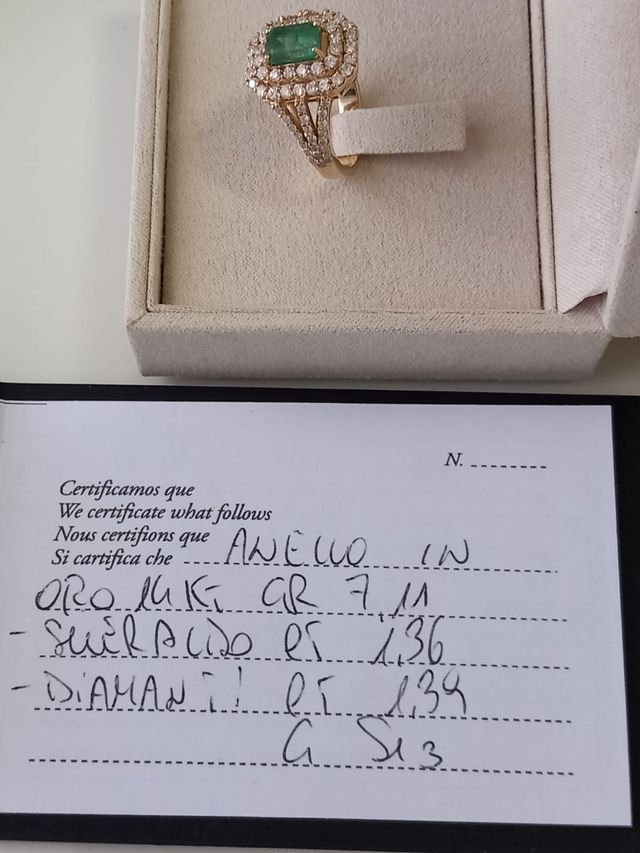 N.
Certificamos que
We certificate what follows
Nous certifions que
Si cartifica che ANELLO IN
ORO 14 KT GR 7,11
- SMERALDO CT 1,36
- DIAMANTI CT 1,34
G SI3